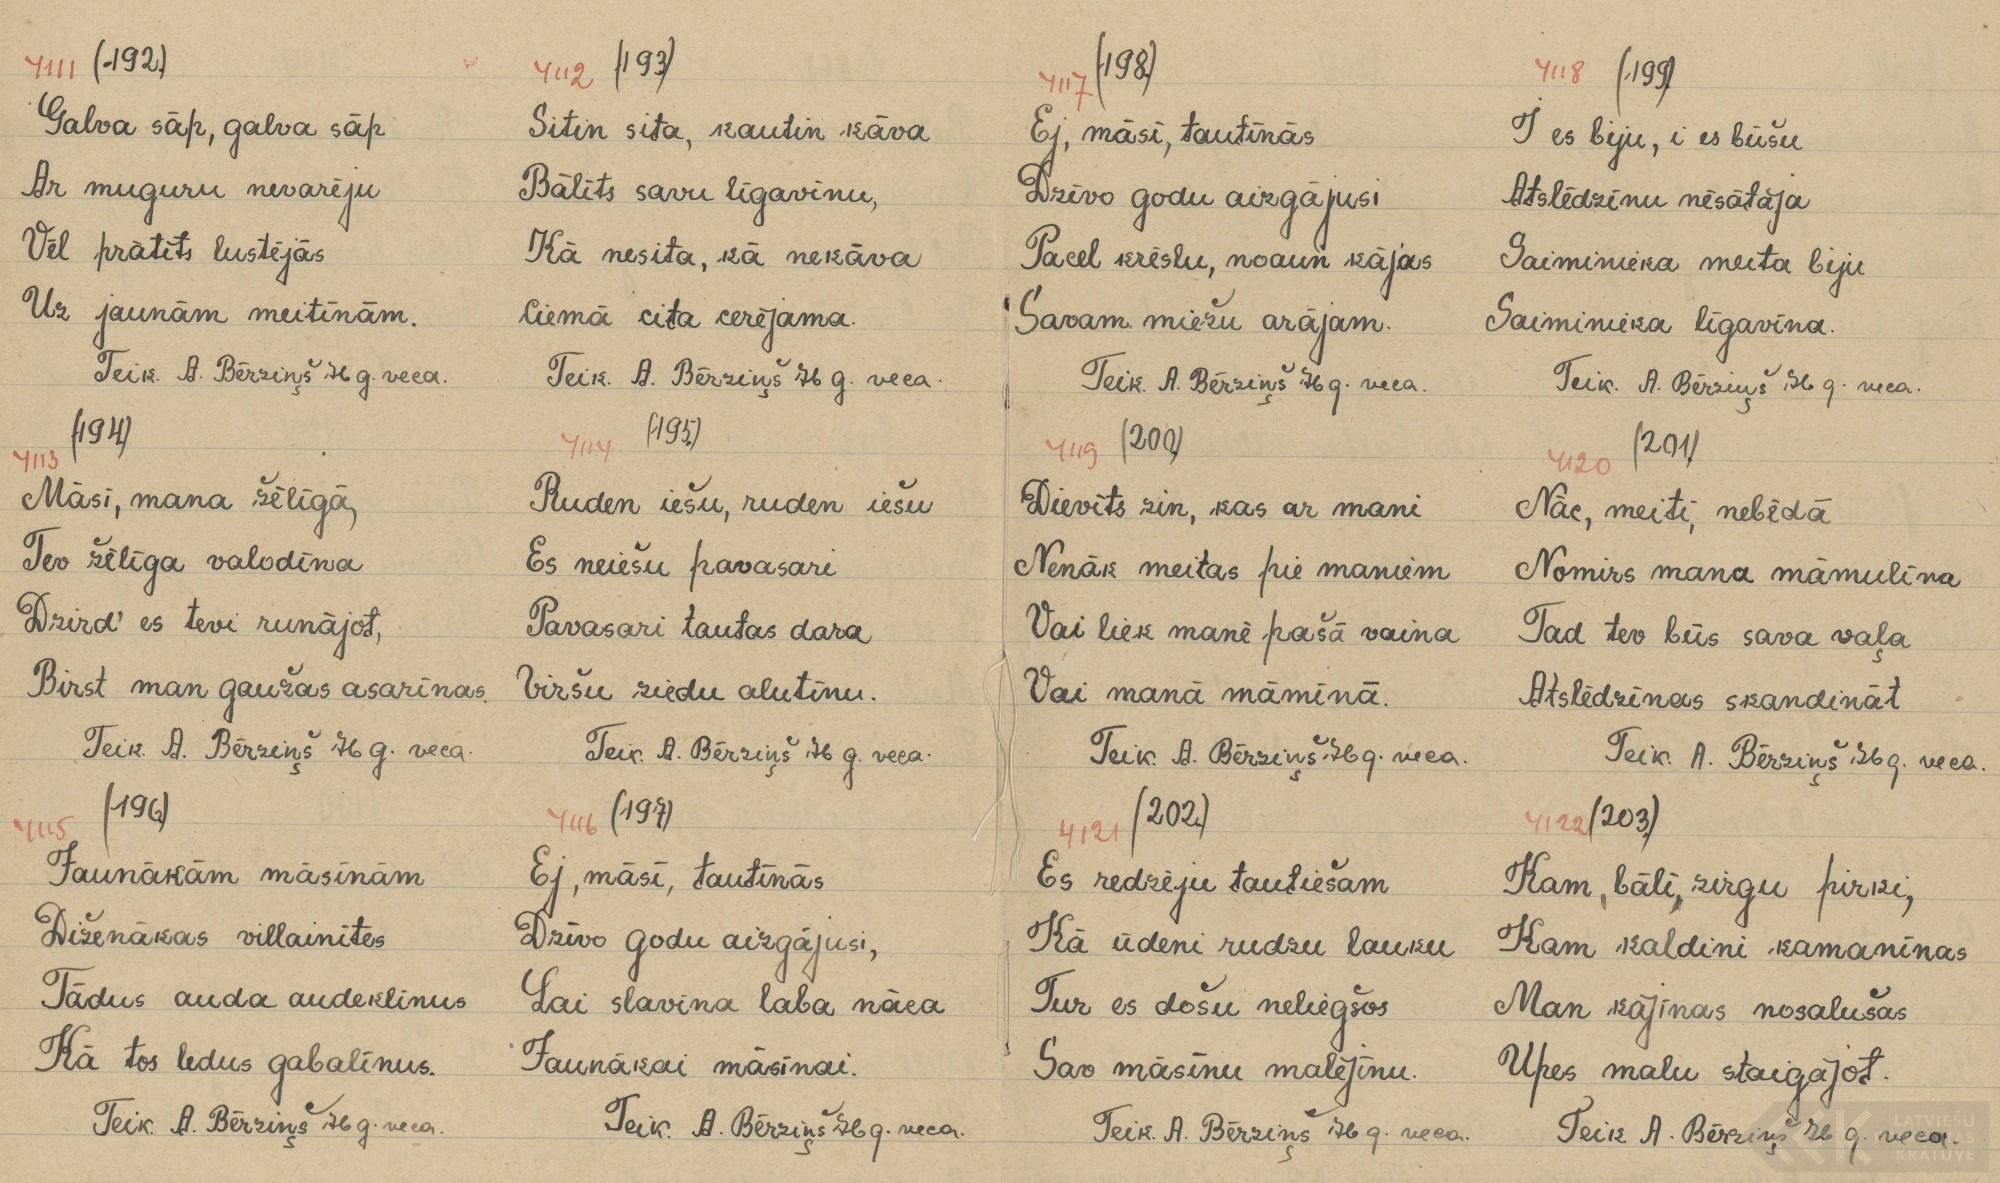 4111 (192.)
Galva sāp, galva sāp
Ar muguru nevarēju
Vēl prātīts lustējās
Uz jaunām meitīnām.
Teik. A. Bērziņš 76 g. veca.
4112 (193)
Sitin sita, kautin kāva
Bālīts savu līgavīnu,
Kā nesita, kā nekāva
Ciemā cita cerējama.
Teik. A. Bērziņš 76 g. veca.
(194)
4113
Māsi, mana žēlīgā,
Tev žēlīga valodīna
Dzird' es tevi runājot,
Birst man gaužas asarīnas.
Teik. A. Bērziņš 76 g. veca.
4114 (195)
Ruden iešu, ruden iešu
Es neiešu pavasari
Pavasari tautas dara
Viršu ziedu alutīnu.
Teik. A. Bērziņš 76 g. veca.
(196)
4115
Jaunākām māsīnām
Diženākas villainītes
Tādus auda audeklīnus
Kā tos ledus gabalīnus.
Teik. A. Bērziņš 76 g. veca.
4116 (197)
Ej, māsī, tautīnās
Dzīvo godu aizgājusi,
Lai slavīna laba nāca
Jaunākai māsīnai.
Teik. A. Bērziņš 76 g. veca.
4117 (198)
Ej, māsī, tautīnās
Dzīvo godu aizgājusi
Pacel krēslu, noaun kājas
Savam miežu arājam.
Teik. A. Bērziņš 76 g. veca.
4118 (199)
I es biju, i es būšu
Atslēdzīnu nēsātāja
Saiminieka meita biju
Saiminieka līgavīna.
Teik. A. Bērziņš 76 g. veca.
4119 (200)
Dievīts zin, kas ar mani
Nenāk meitas pie maniem
Vai liek manē pašā vaina
Vai manā māmīnā.
Teik. A. Bērziņš 76 g. veca.
4120 (201)
Nāc, meiti, nebēdā
Nomirs mana māmulīna
Tad tev būs sava vaļa
Atslēdzīnas skandināt
Teik. A. Bērziņš 76 g. veca.
4121 (202.)
Es redzēju tautiešam
Kā ūdeni rudzu lauku
Tur es došu neliegšos
Sav māsīnu malējīnu.
Teik. A. Bērziņš 76 g. veca.
4122 (203)
Kam, bāli, zirgu pirki,
Kam kaldini kamanīnas
Man kājīnas nosalušas
Upes malu staigājot.
Teik A. Bērziņš 76 g. veca.
LATVIEŠU
KRĀTUVE